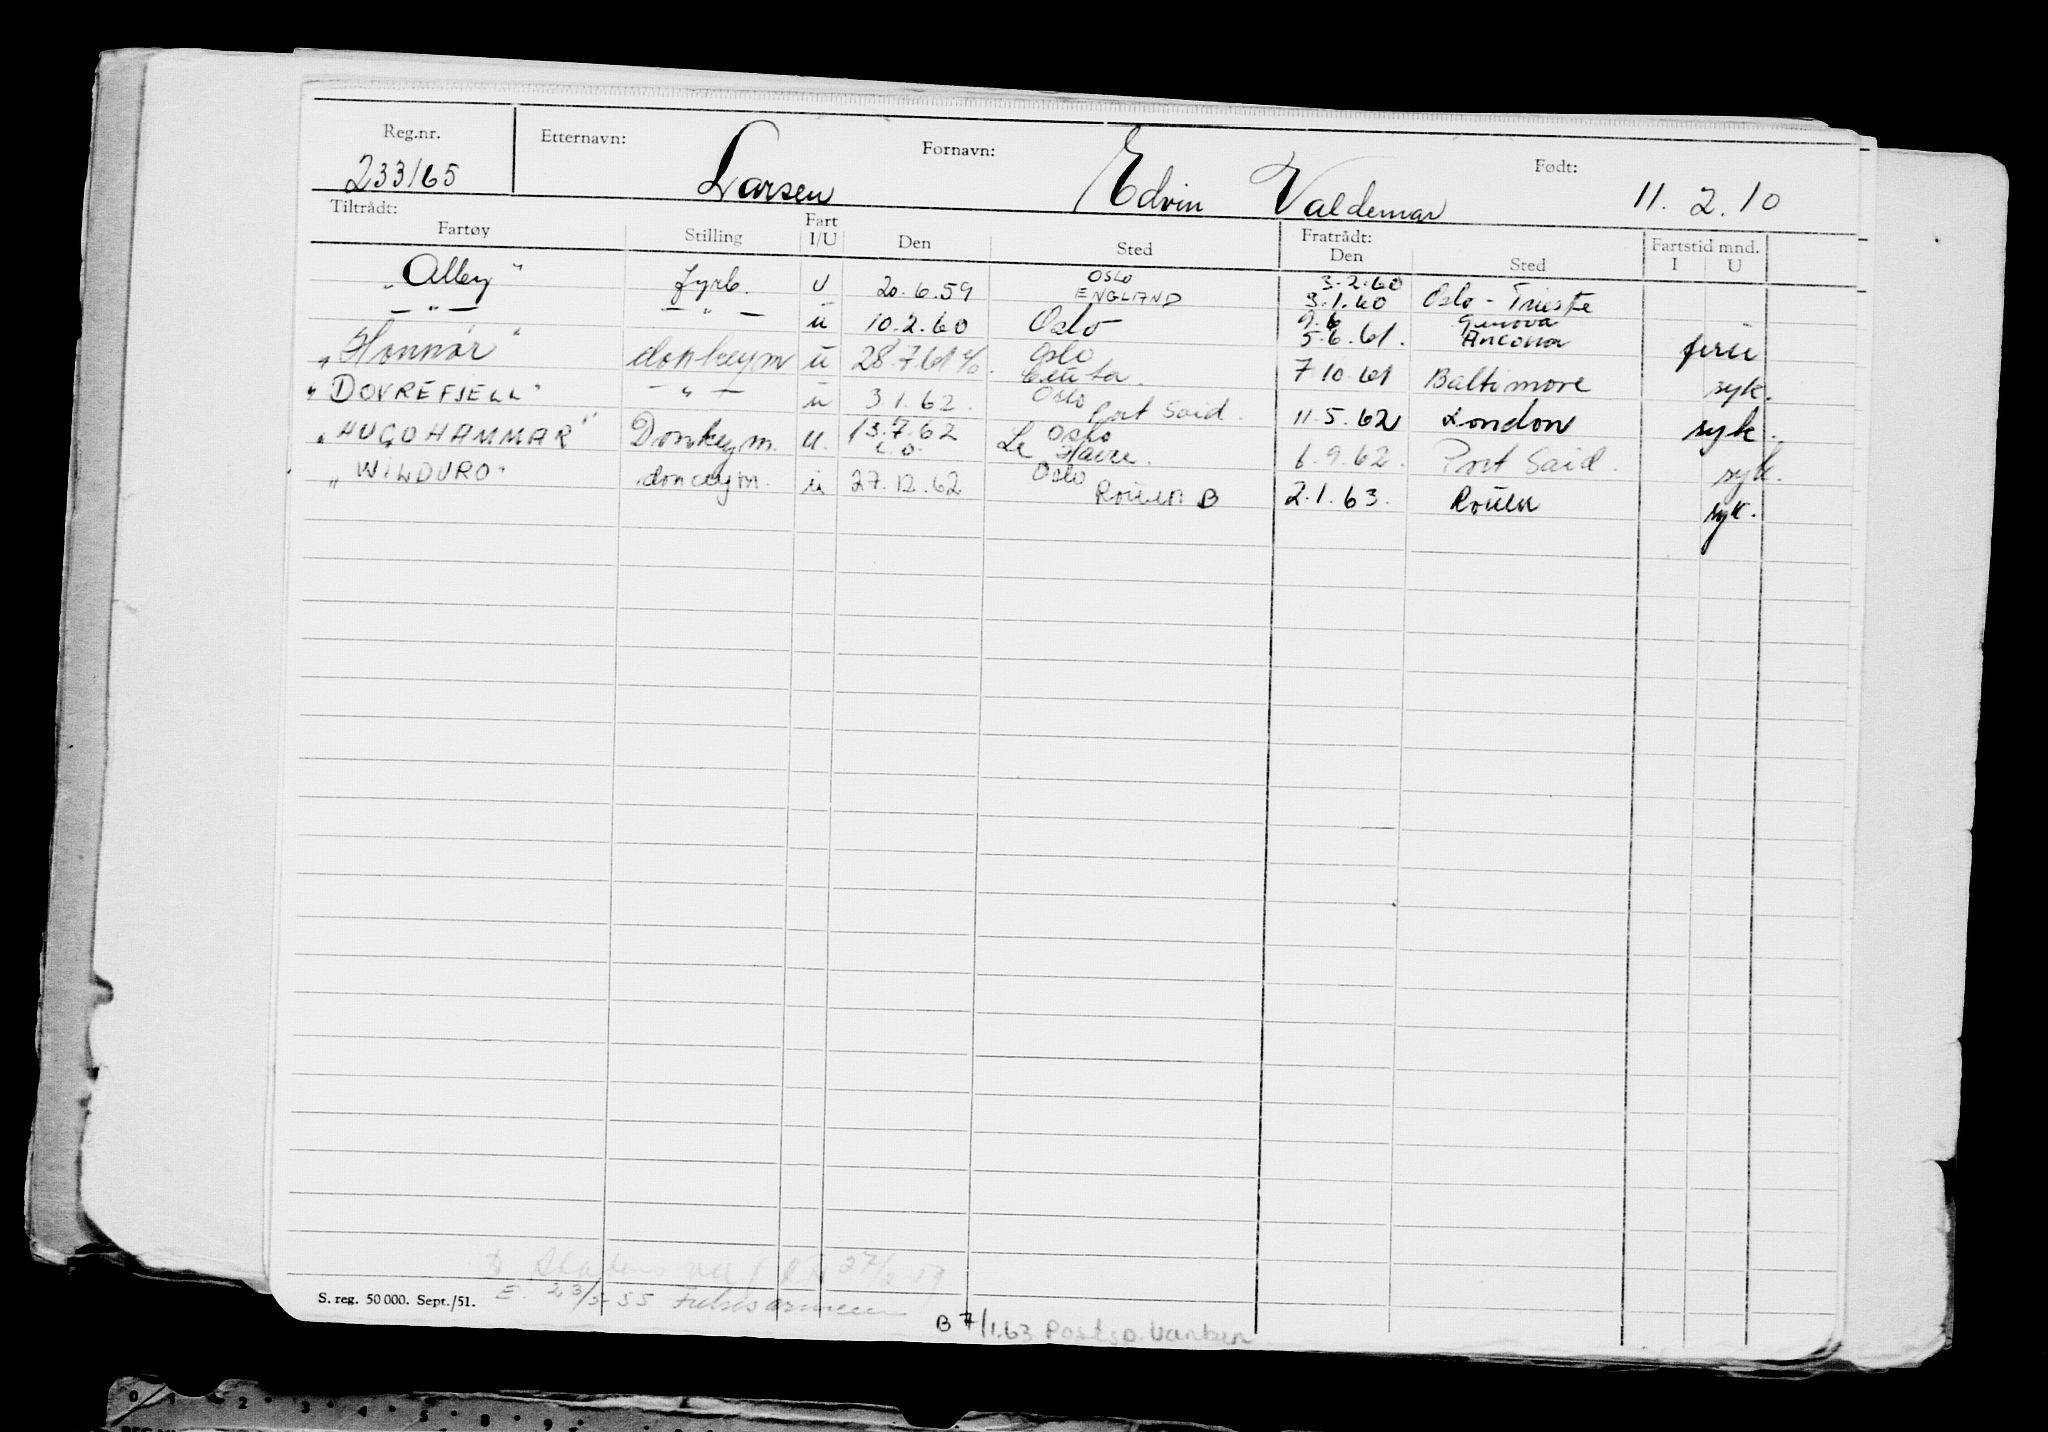 Reg.nr. Etternavn: Fornavn: Født:
233165 Larsen Edvin Valdemar 11.2.10
Tiltrådt: Fratrådt:
Fartøy Stilling Fart I/U Den Sted Den Sted Fartstid mnd. I U
"Alley" fyrb. U 20.6.59 OSLO ENGLAND 3.2.60 3.1.60 Oslo - Trieste
— " — — " — u 10.2.60 Oslo 9.6 5.6.61. Genova Ancona ferie
"Honnør" donkeym u 28.7.61 Oslo Ceuta. 7.10.61 Baltimore syk.
"DOVREFJELL" — " — u 3.1.62. Oslo Port Said. 11.5.62 London syk.
"HUGO HAMMAR" Donkeym. u. 13.7.62 Oslo Le Havre. 6.9.62. Port Said. syk.
"WILDURO" donceym. u 27.12.62 Oslo Rouen B 2.1.63. Rouen syk.
27/2 59
S. reg. 50 000. Sept./51. E. 23/5-55 Frelsesarmeen
B 7/1.63 Postsp.banken
0 1 2 3 4 5 8 9